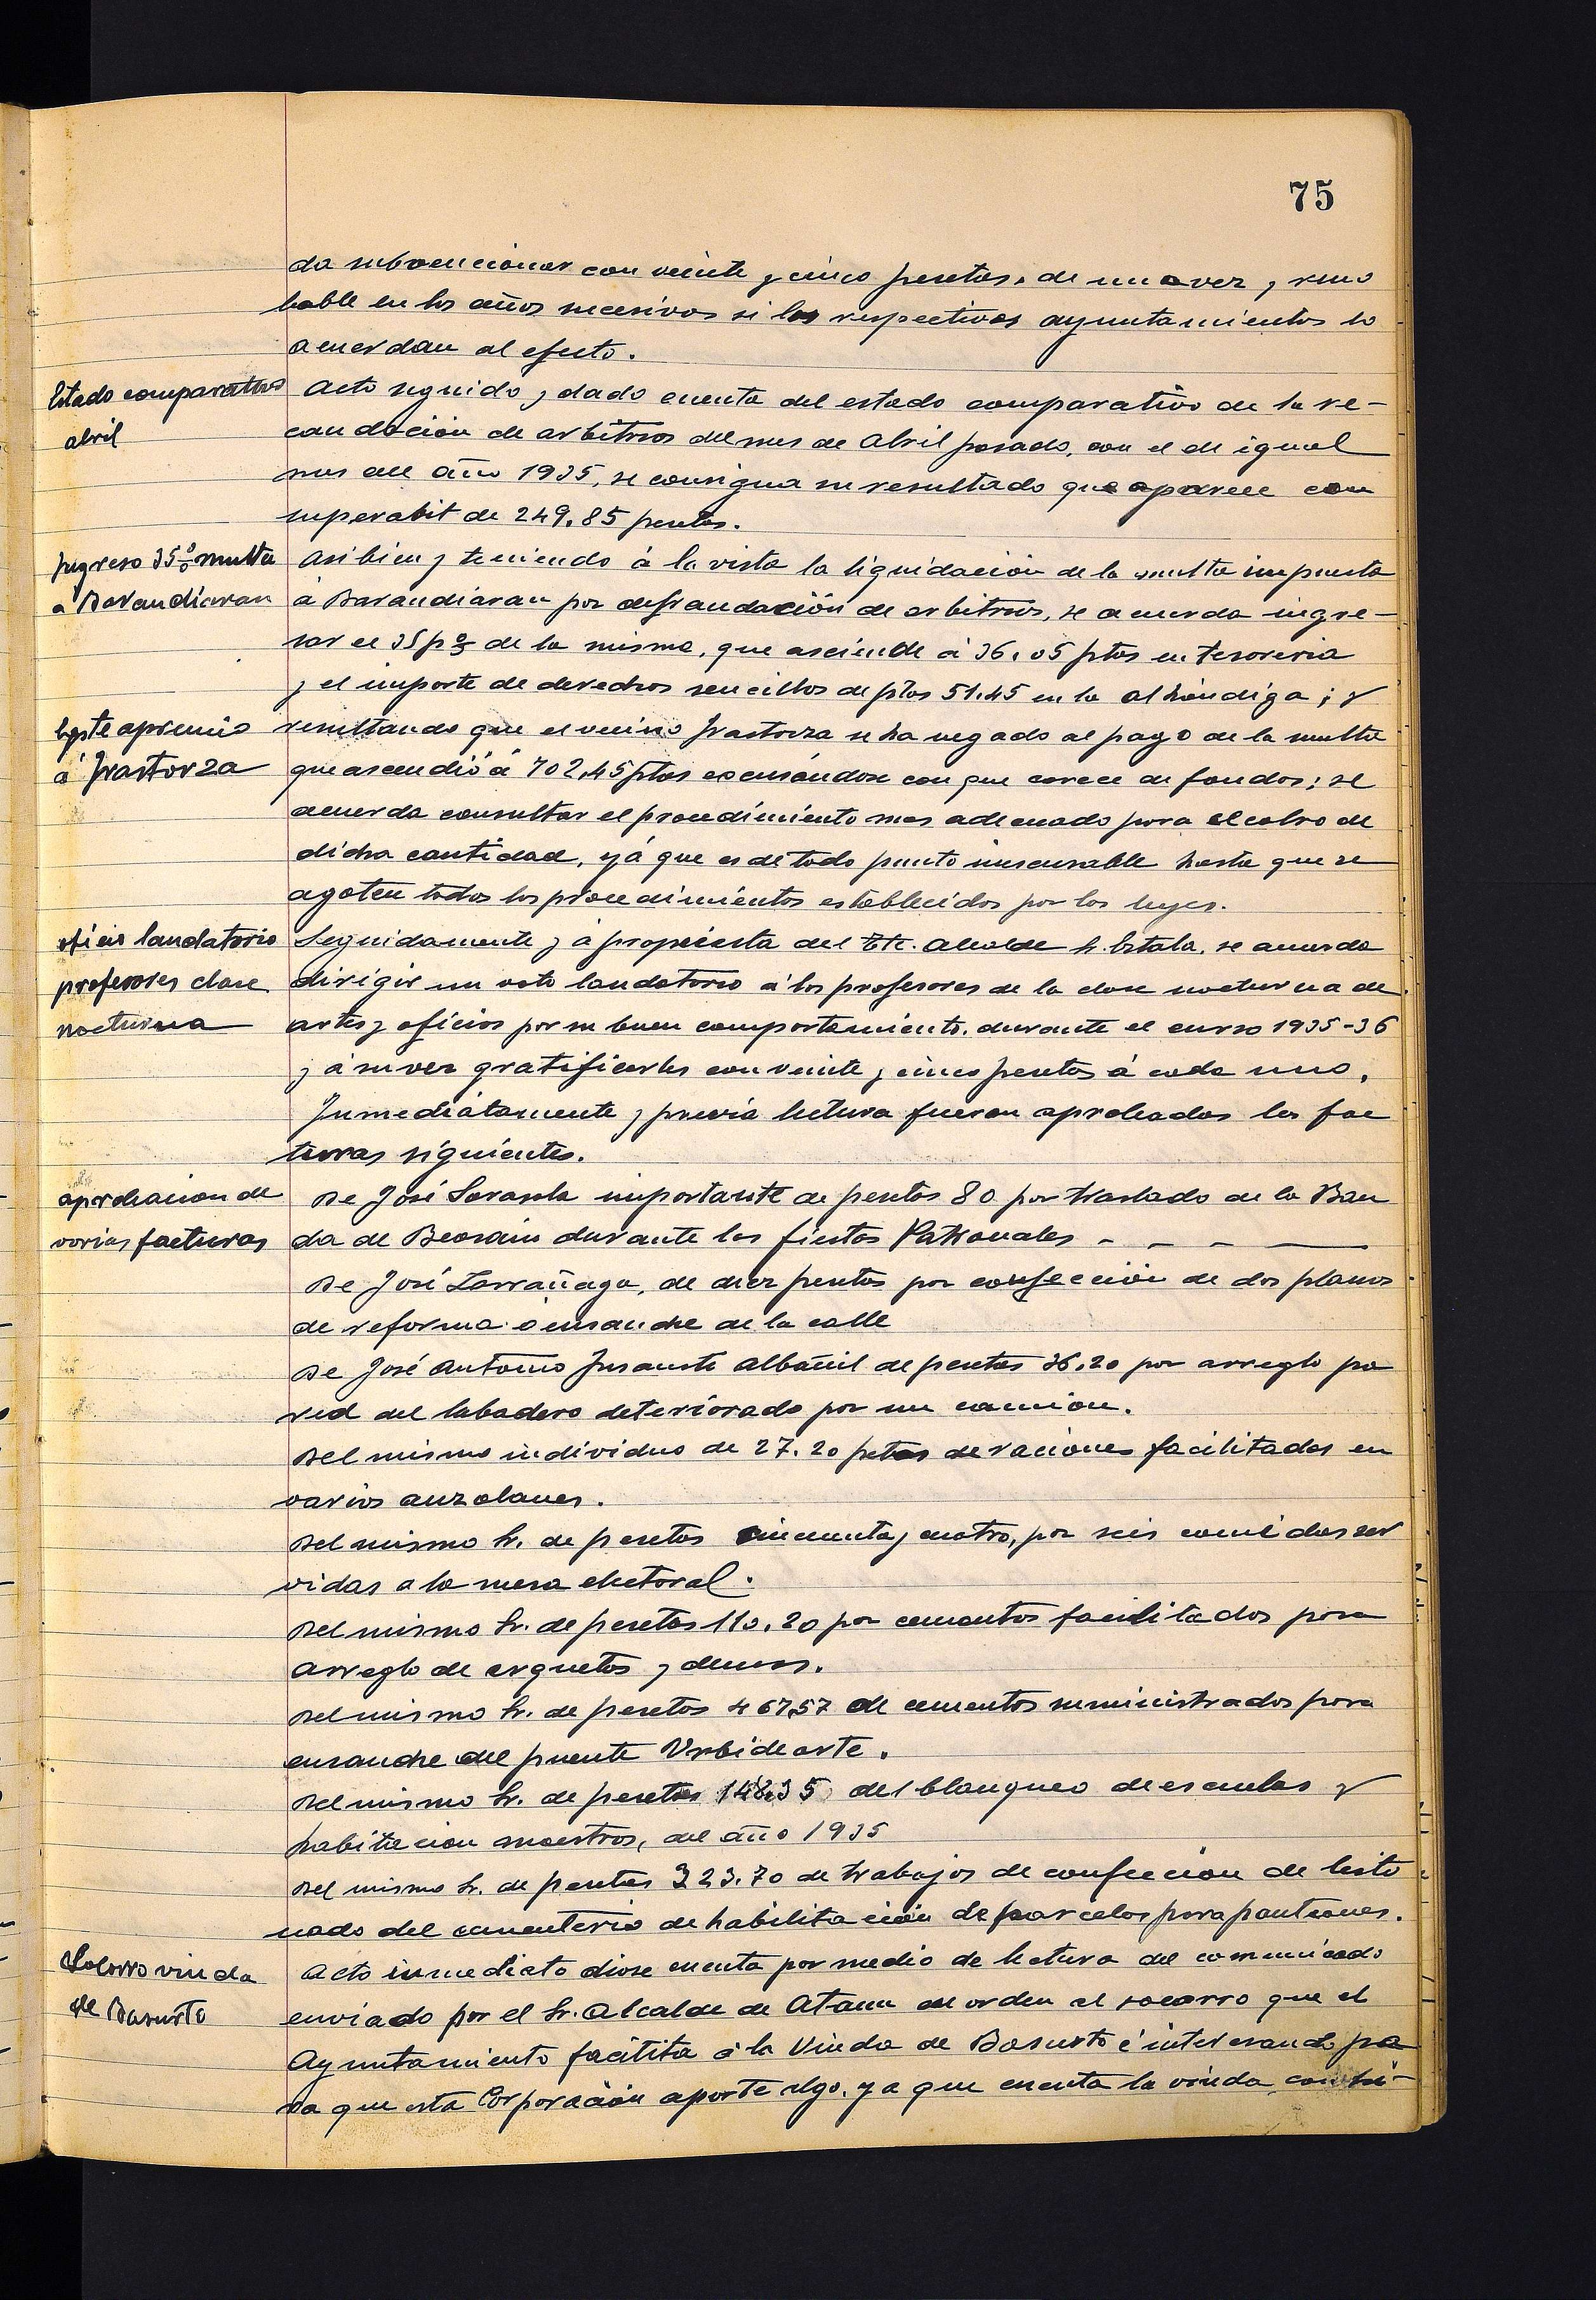 75
da subvencionar con veinte y cinco pesetas, de una vez, reno
bable en los años sucesivos si los respectivos ayuntamientos lo
acuerdan al efecto.
Estado comparativo
abril
Acto seguido y dado cuenta del estado comparativo de la re-
caudación de arbitrios del mes de Abril pasado, con el de igual
mes del año 1935, se consigna su resultado que aparece con
superabit de 249.85 pesetas.
Ingreso 35% multa
a Barandiaran
Asi bien y teniendo á la vista la liquidación de la multa impuesta
á Barandiaran por defraudación de arbitrios, se acuerda ingre-
sar el 35 p% de la misma, que asciende á 36.05 ptas en tesoreria
y el importe de derechos sencillos de ptas 51.45 en la alhóndiga; y
apremio
á Irastorza
resultando que el vecino Irastorza se ha negado al pago de la multa
que ascendió á 702,45 ptas escusándose con que carece de fondos; se
acuerda consultar el procedimiento mas adecuado para el cobro de
dicha cantidad, yá que es de todo punto inescusable hasta que se
agoten todos los procedimientos establecidos por las leyes.
oficio laudatorio
profesores clase
nocturna
Seguidamente y á propuesta del Tte. Alcalde Sr. Estala, se acuerda
dirigir un voto laudatorio á los profesores de la clase nocturna de
artes y oficios por su buen comportamiento, durante el curso 1935-36
y á su vez gratificarles con veinte y cinco pesetas á cada uno,
Inmediátamente y previa lectura fueron aprobadas las fac
turas siguientes.
aprobacion de
varias facturas
De José Sarasola importante de pesetas 80 por traslado de la Ban
da de Beasain durante las fiestas Patronales - - - -
De José Larrañaga, de diez pesetas por confección de dos planos
de reforma ó ensanche de la calle
De José Antonio Insausti Albañil de pesetas 36.20 por arreglo pa
red del labadero deteriorado por un camion.
Del mismo individuo de 27.20 petas de raciones facilitadas en
varios auzolanes.
Del mismo Sr. de pesetas cincuenta y cuatro, por seis comidas ser
vidas a la mesa electoral.
Del mismo Sr. de pesetas 110.20 por cementos facilitados para
arreglo de arquetas y demas.
Del mismo Sr. de pesetas 467,57 de cementos suministrados para
ensanche del puente Urbidearte.
Del mismo Sr. de pesetas 148.35 del blanqueo de escuelas y
habitacion maestros, del año 1935
Del mismo Sr. de pesetas 323.70 de trabajos de confeccion de
nado del cementerio de habilitación de parcelas para panteones.
Socorro viuda
de Basurto
Acto inmediato diose cuenta por medio de lectura del comunicado
enviado por el Sr. Alcalde de Ataun de orden al socorro que el
Ayuntamiento facilita á la Viuda de Basurto é interesando pa
ra que esta Corporación aporte algo, ya que cuenta la viuda